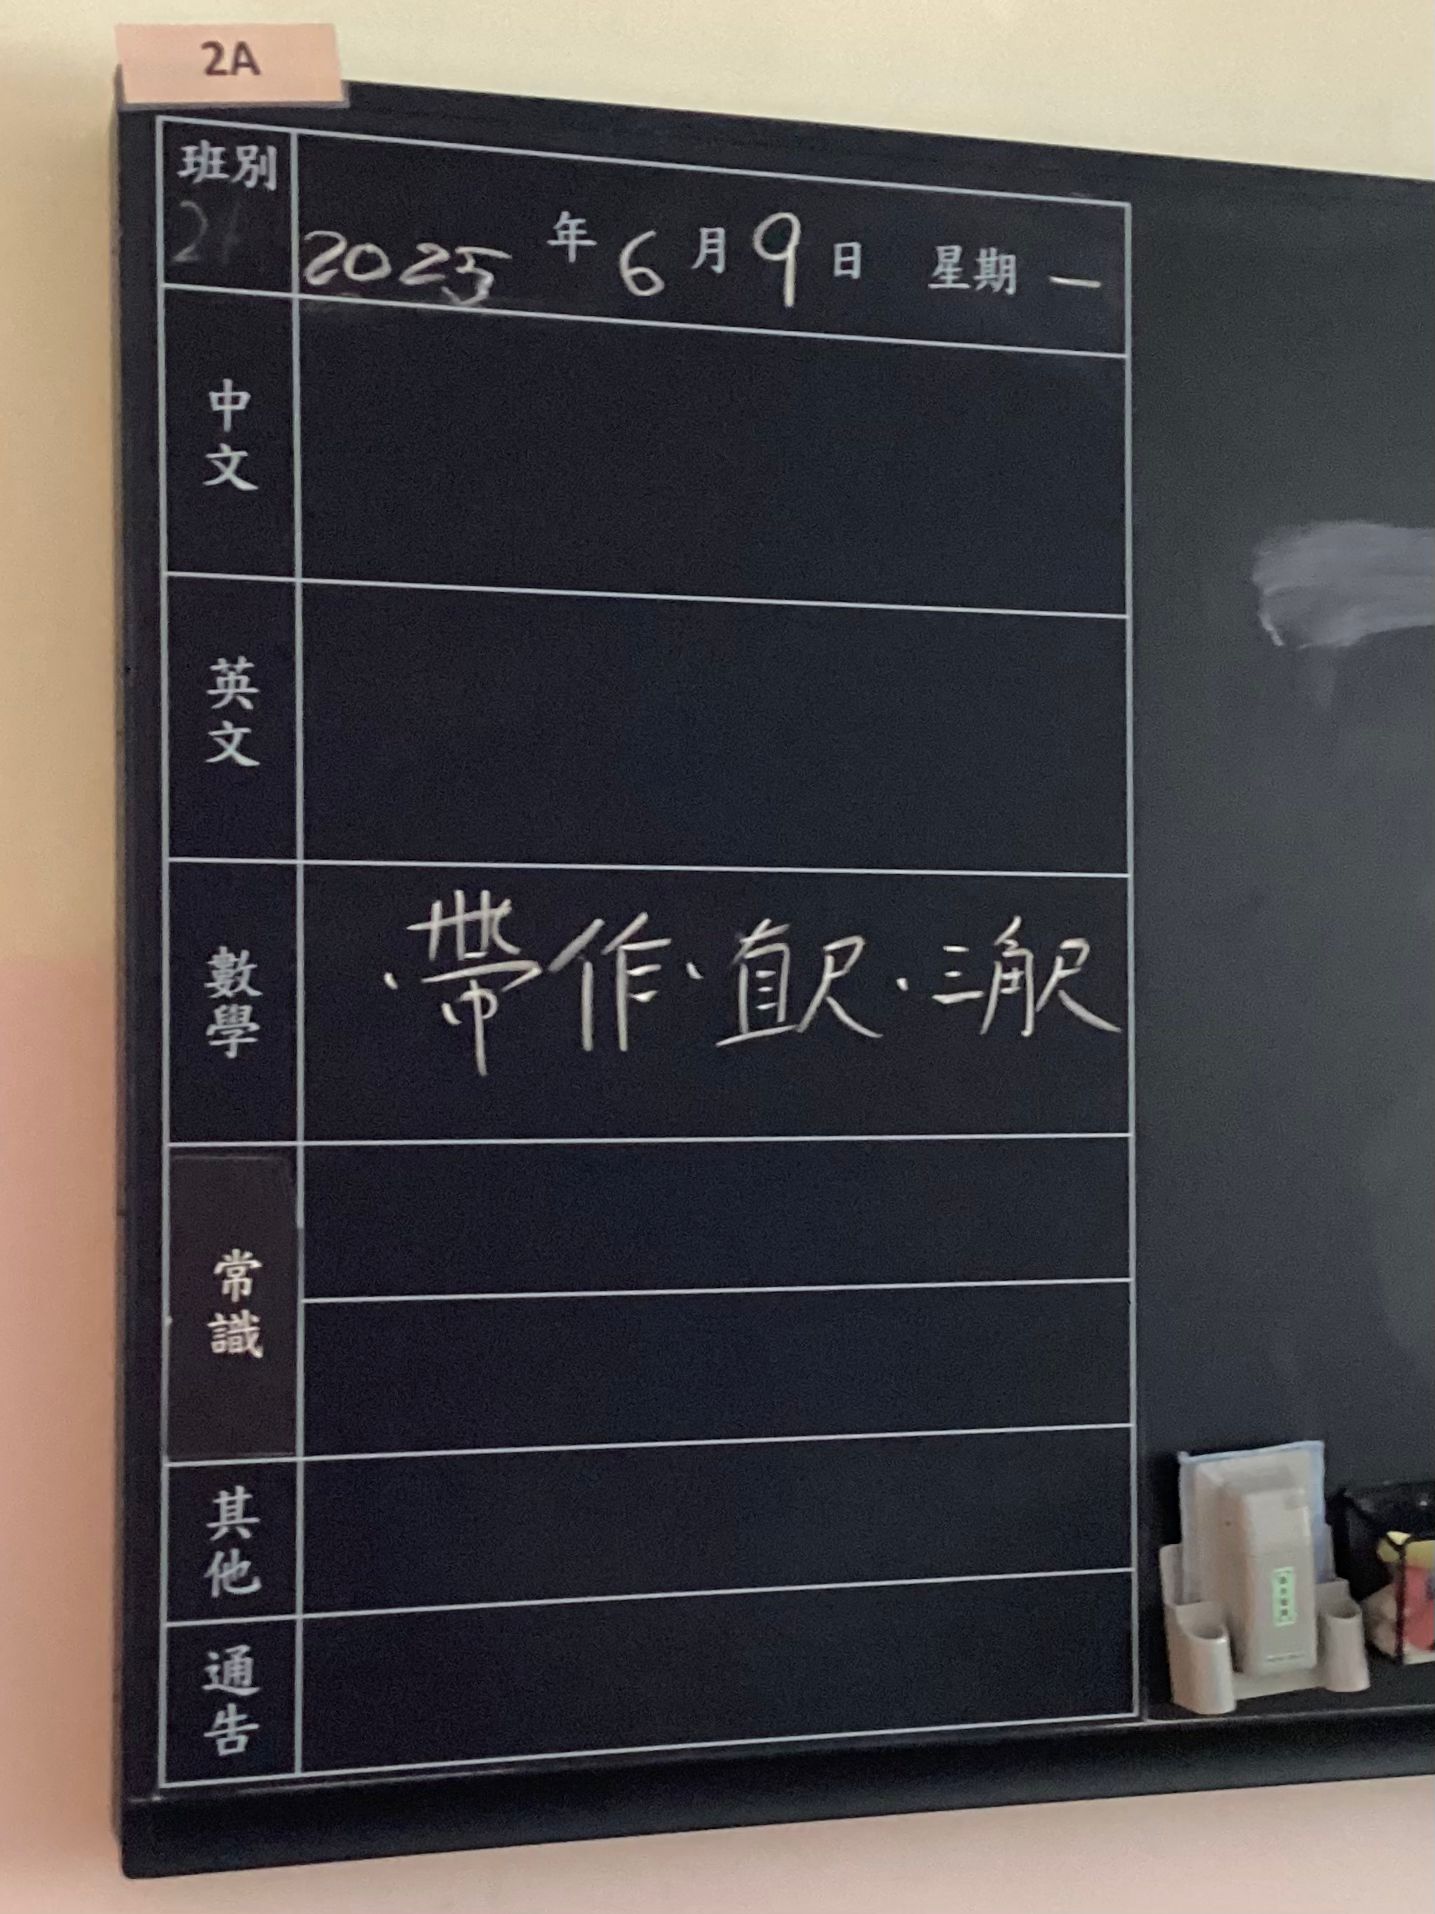 2A
班別
2025 年 6 月 9 日 星期 一
中文
英文
數學
·帶作·直尺·三角尺
常識
其他
通告